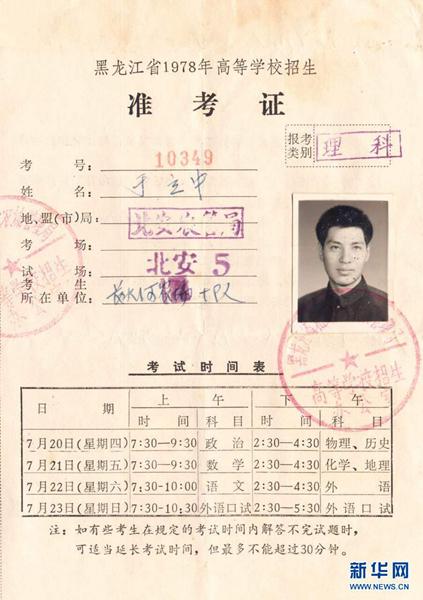 黑龙江省1978年高等学校招生
准考证
报考类别 理科
考号: 10349
姓名: 于立中
地、盟(市)局: 北安农管局
考场: 北安 5
试场:
考生所在单位:
高等学校招生
考试时间表
日期 上午 下午
时间 科目 时间 科目
7月20日(星期四) 7:30—9:30 政治 2:30—4:30 物理、历史
7月21日(星期五) 7:30—9:30 数学 2:30—4:30 化学、地理
7月22日(星期六) 7:30-10:00 语文 2:30—4:30 外语
7月23日(星期日) 7:30-10:30 外语口试 2:30—5:30 外语口试
注：如有些考生在规定的考试时间内解答不完试题时，
可适当延长考试时间，但最多不能超过30分钟。
新华网
WWW.NEWS.CN